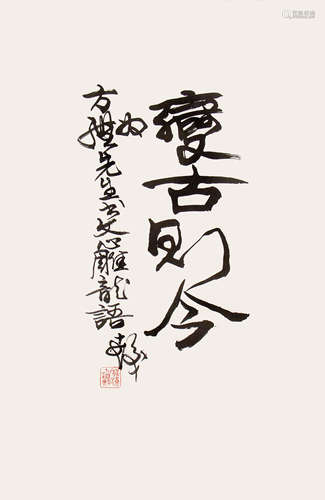 變古則今
为
方 先生书文心雕龍語